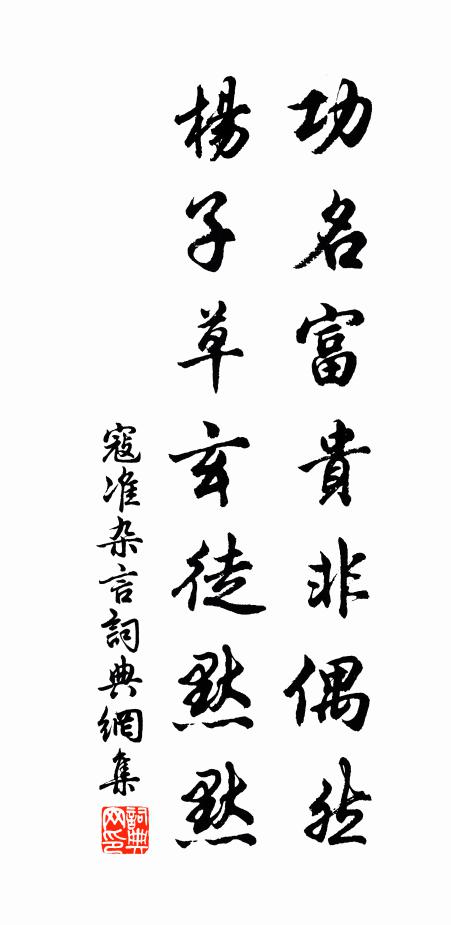 功名富貴非偶然
楊子草玄徒默默
寇准杂言詞典網集
詞典网印